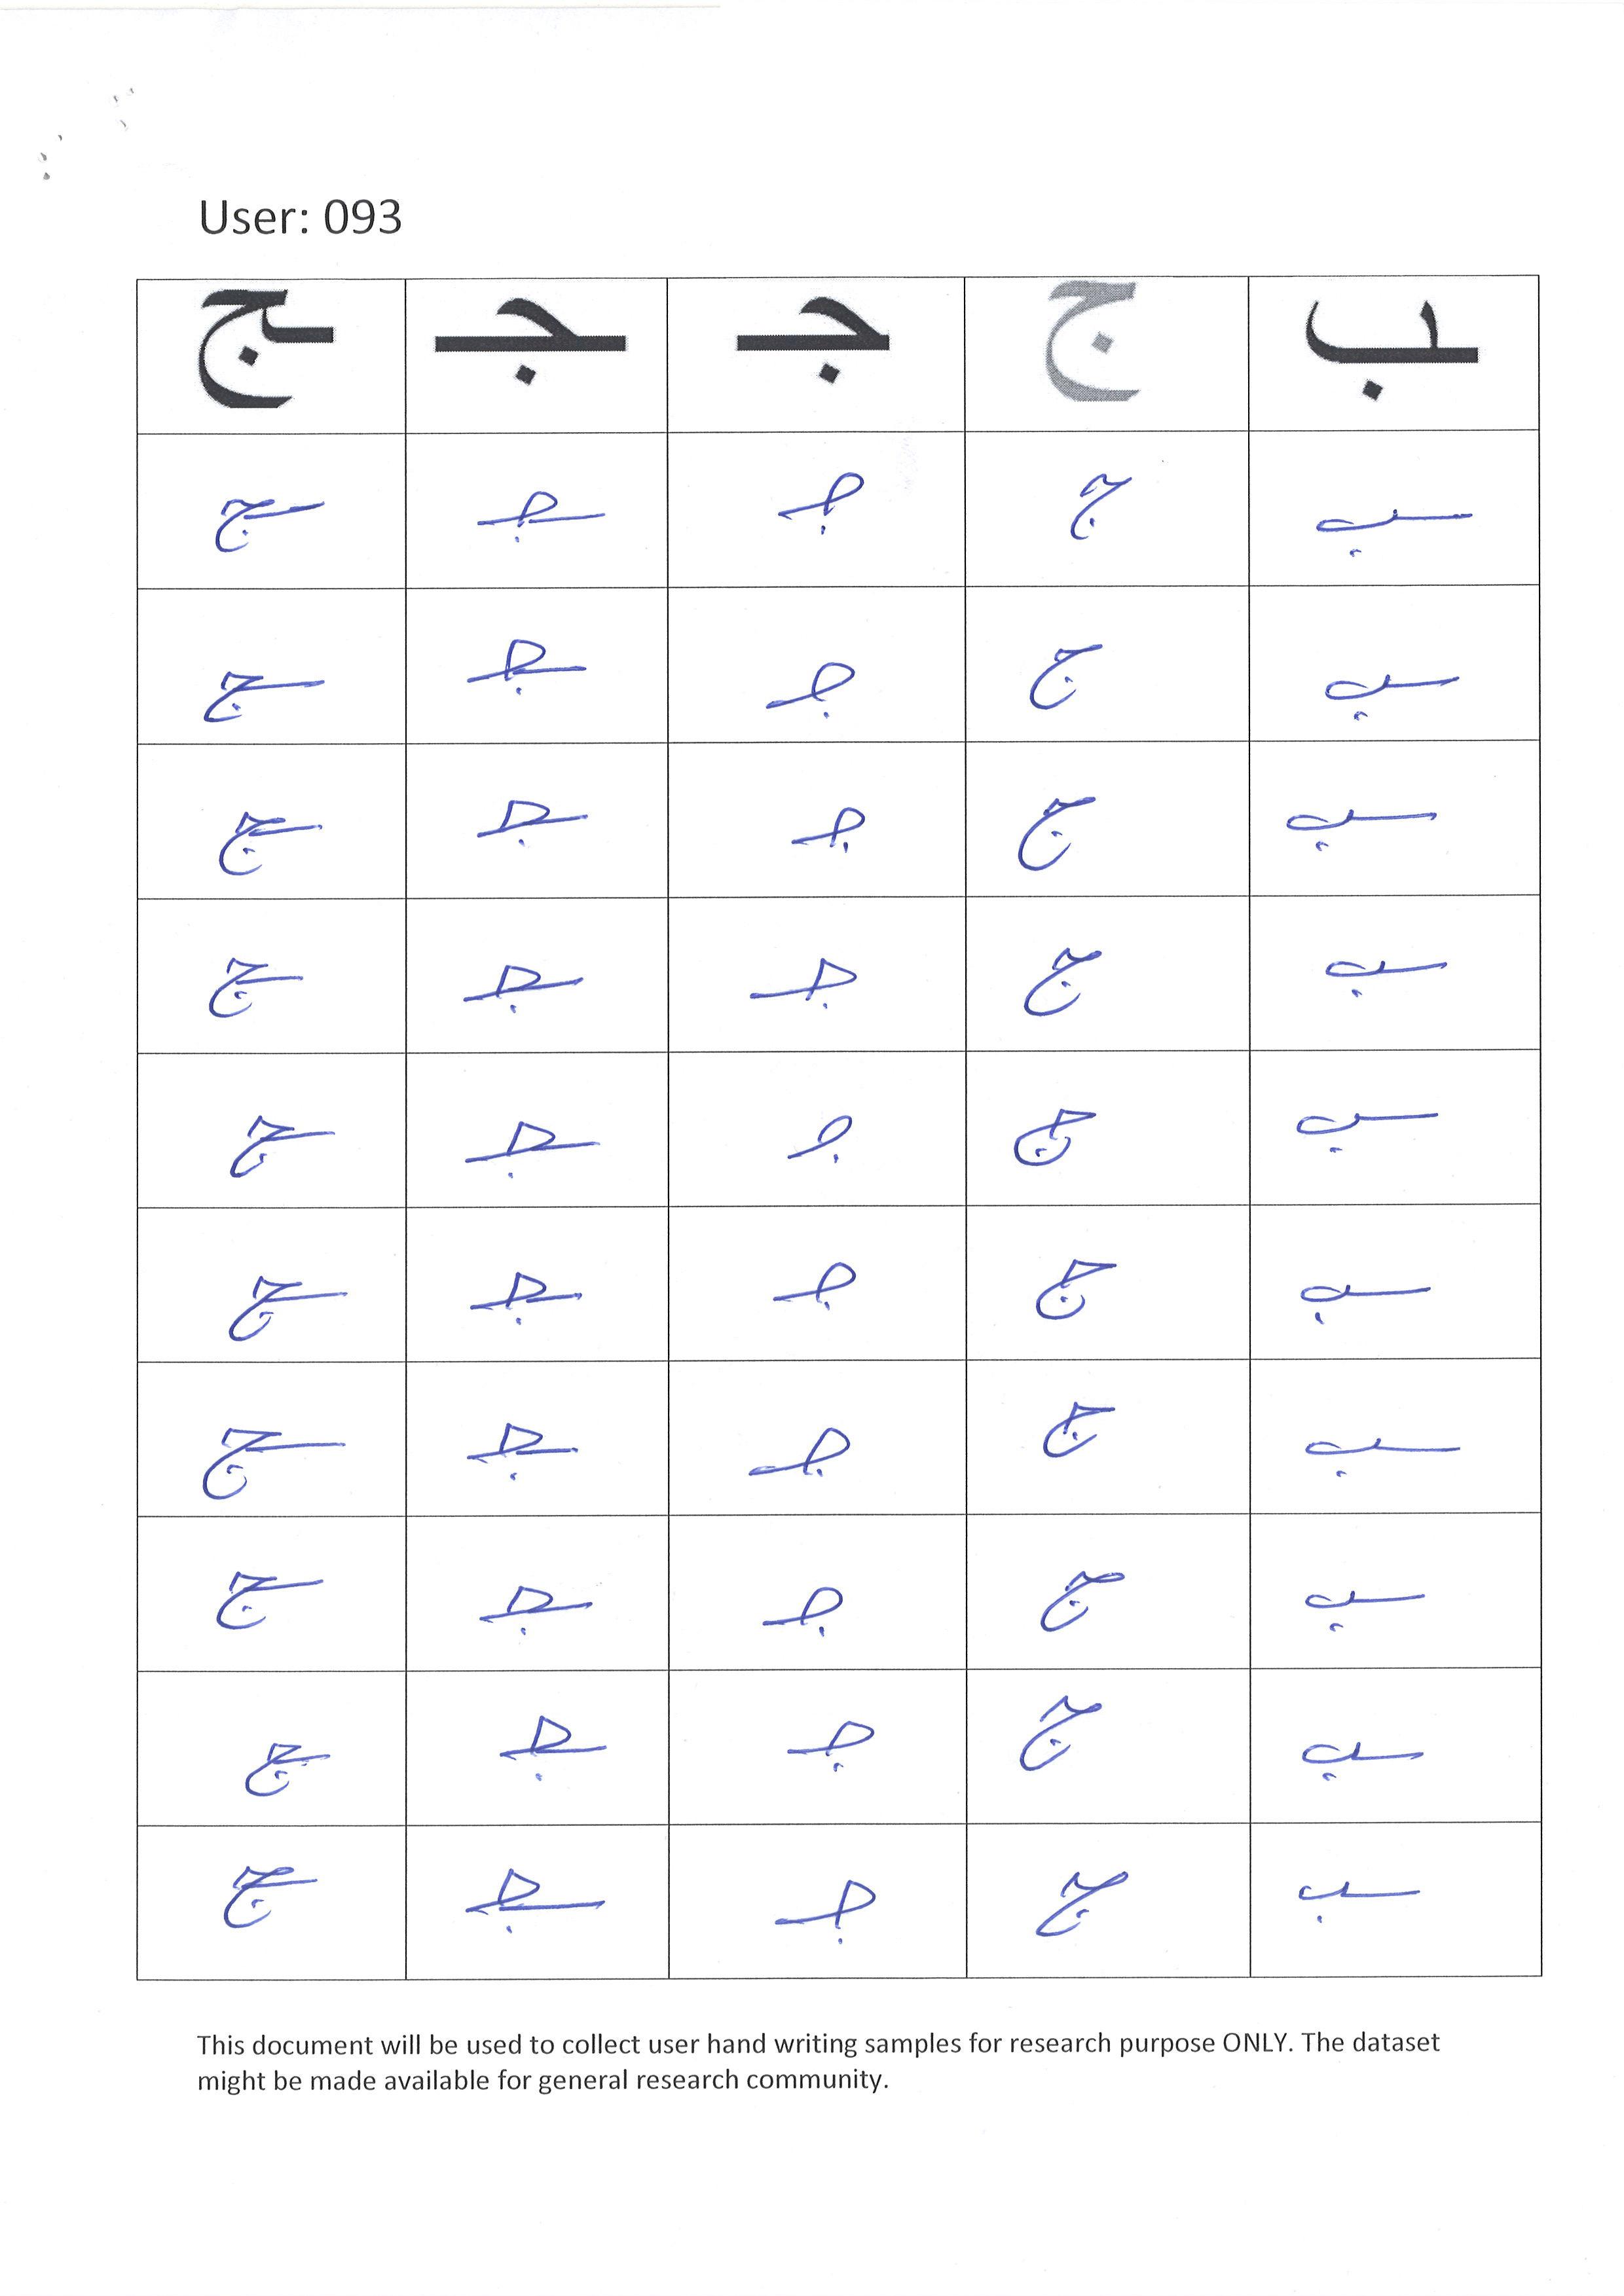 User: 093
ـب ج جـ ـجـ ـج
ـب ج جـ ـجـ ـج
ـب ج جـ ـجـ ـج
ـب ج جـ ـجـ ـج
ـب ج جـ ـجـ ـج
ـب ج جـ ـجـ ـج
ـب ج جـ ـجـ ـج
ـب ج جـ ـجـ ـج
ـب ج جـ ـجـ ـج
ـب ج جـ ـجـ ـج
ـب ج جـ ـجـ ـج
This document will be used to collect user hand writing samples for research purpose ONLY. The dataset
might be made available for general research community.